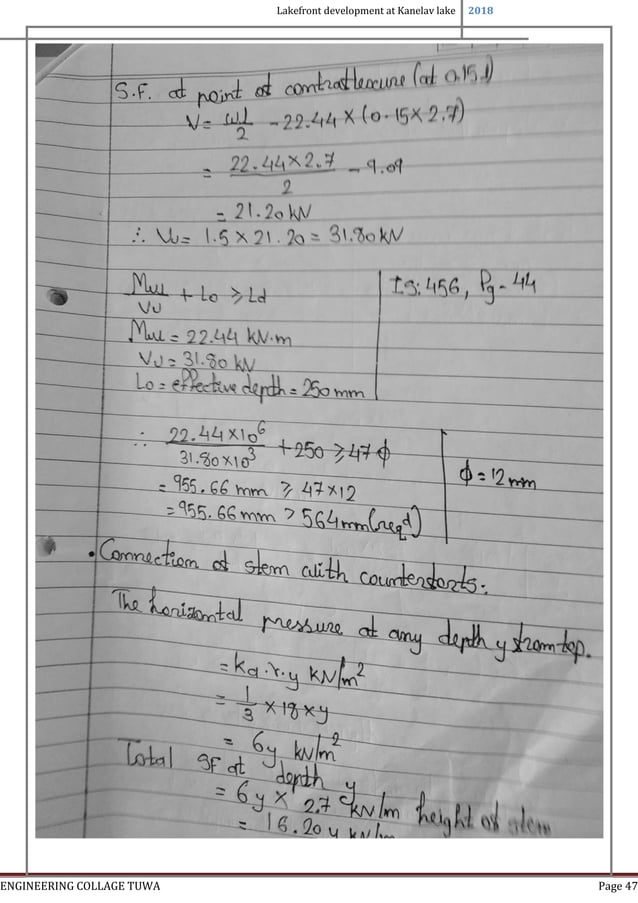 Lakefront development at Kanelav lake 2018
S.F. at point of contraflexure (at 0.15l)
V = wl/2 - 22.44 × (0.15 × 2.7)
= 22.44×2.7/2 - 9.09
= 21.20 kN
∴ Vu = 1.5 × 21.20 = 31.80 kN
Mu1/Vu + Lo ≥ Ld
IS:456, Pg-44
Mu1 = 22.44 kN.m
Vu = 31.80 kN
Lo = effective depth = 250mm
∴ 22.44×10⁶/31.80×10³ + 250 ≥ 47 ϕ
ϕ = 12 mm
= 955.66 mm ≥ 47×12
= 955.66 mm > 564 mm (req'd)
• Connection of stem with counterforts:
The horizontal pressure at any depth y from top.
= ka.r.y kN/m²
= 1/3 × 18 × y
= 6y kN/m²
Total SF at depth y
= 6y × 2.7 kN/m height of stem
= 16.20 y kN/m
ENGINEERING COLLAGE TUWA Page 47